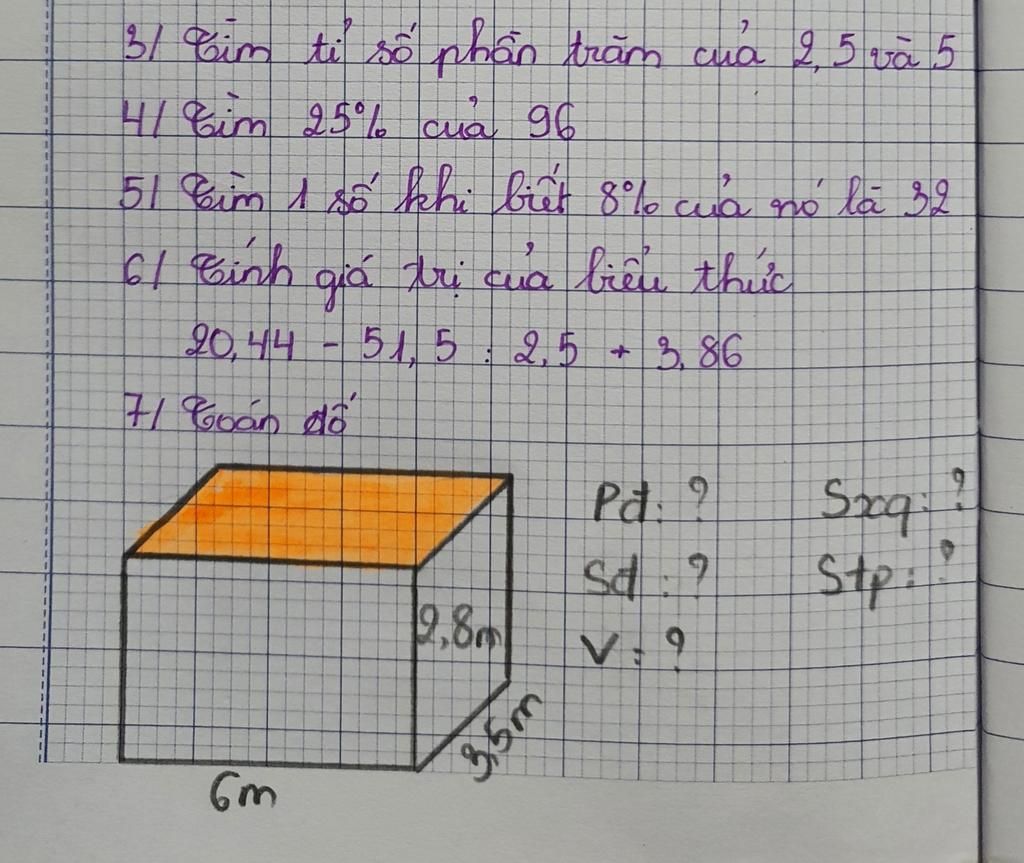 3/ Tìm tỉ số phần trăm của 2,5 và 5
4/ Tìm 25% của 96
5/ Tìm 1 số khi biết 8% của nó là 32
6/ Tính giá trị của biểu thức
20,44 - 51,5 : 2,5 + 3,86
7/ Toán đố
Pđ : ? Sxq : ?
Sđ : ? Stp : ?
V : ?
2,8m
3,5m
6m